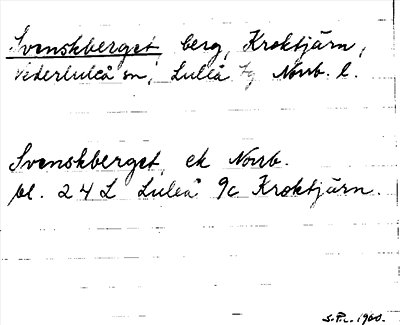 Svenskberget, berg, Kroktjärn,
Nederluleå sn, Luleå tg Norrb. l.
Svenskberget, ek Norrb.
bl. 24 L Luleå 9c Kroktjärn.
S.P.L. 1960.